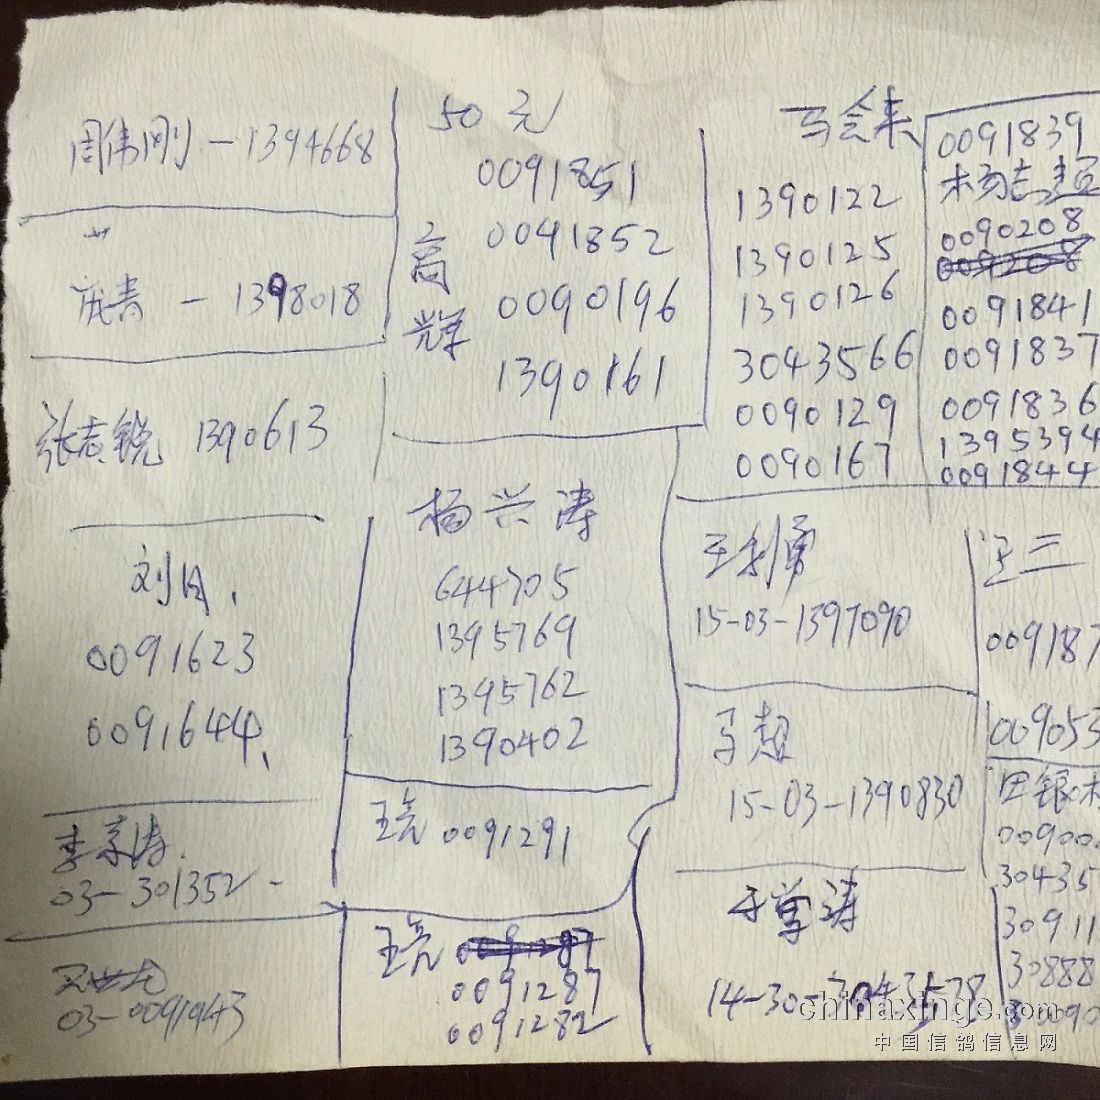 周伟刚-1394668
庞春 - 1398018
张志锐 1390613
刘
0091623
0091644
李
03-301352-
03-0091943
50元
高辉
0091851
0091852
0090196
1390161
杨兴涛
644705
1395769
1395762
1390402
王亮 0091291
王亮
0091287
0091282
马会来
1390122
1390125
1390126
3043566
0090129
0090167
0091839
杨志超
0090208
0091841
0091837
0091836
1395394
0091844
王利勇
15-03-1397090
马超
15-03-1390830
于学涛
14-30-3043578
汪三
009187
009053
田银
00900
30435
30911
30888
chinaxinge.com
中国信鸽信息网